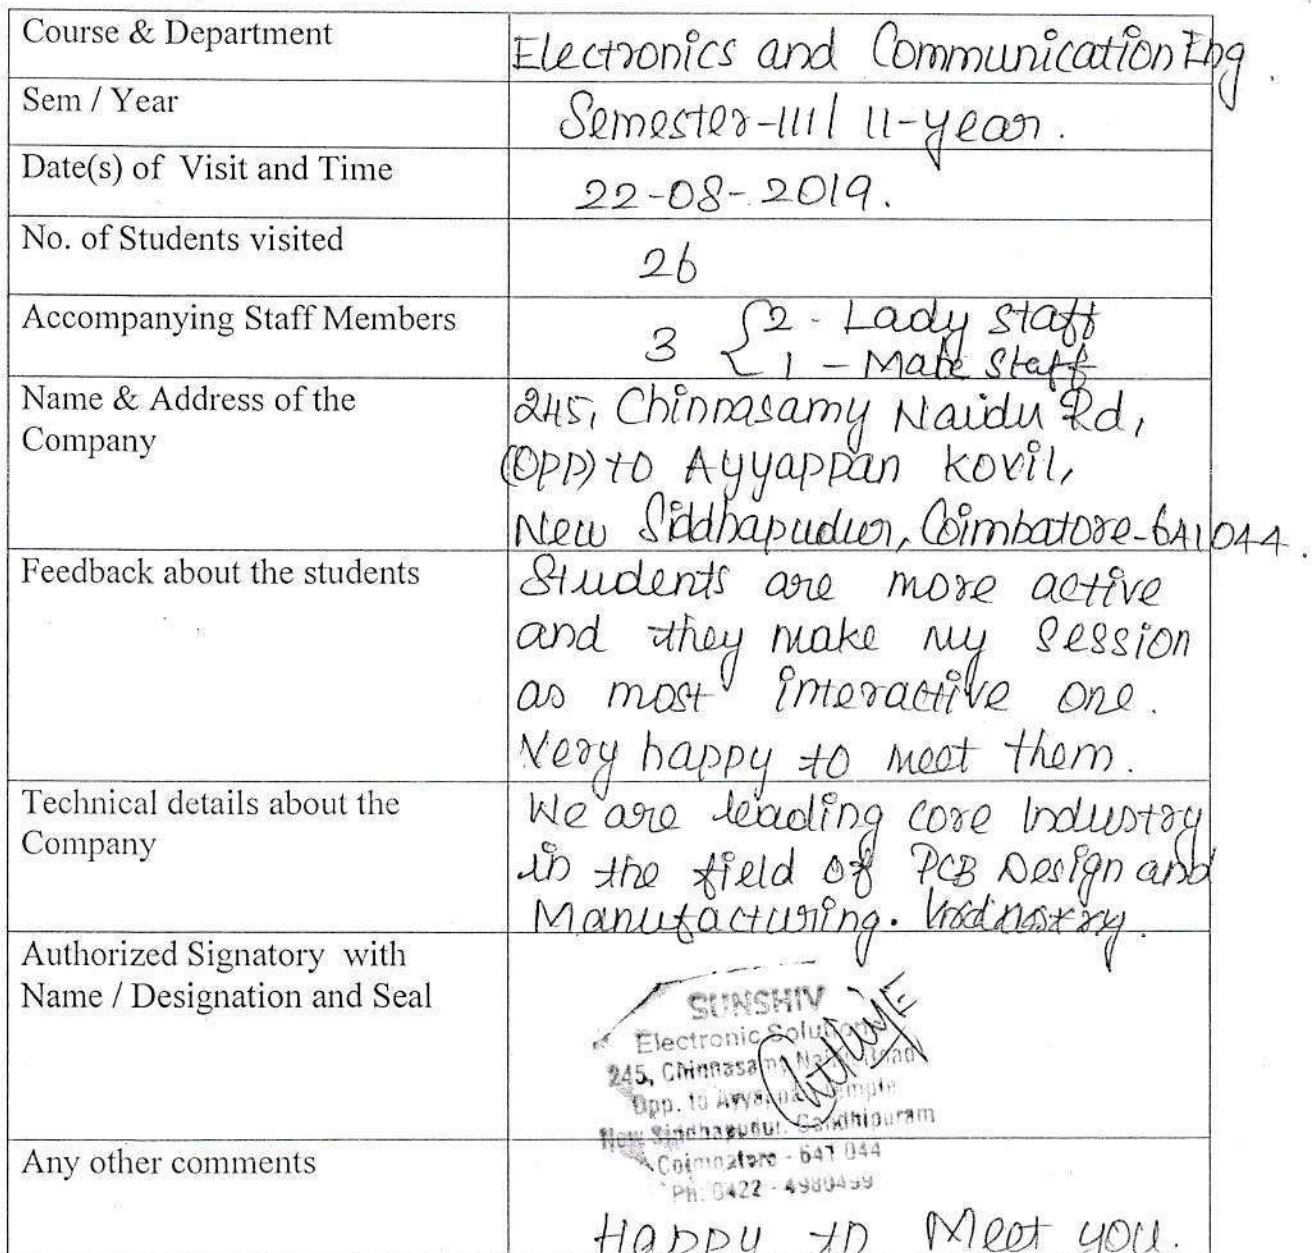 Course & Department
Electronics and Communication Eng.
Sem / Year
Semester-III / II-year.
Date(s) of Visit and Time
22-08-2019.
No. of Students visited
26
Accompanying Staff Members
3 { 2 - Lady staff
1 - Male staff
Name & Address of the
Company
245, Chinnasamy Naidu Rd,
(Opp) to Ayyappan kovil,
New Siddhapudur, Coimbatore-641044.
Feedback about the students
Students are more active
and they make my session
as most interactive one.
Very happy to meet them.
Technical details about the
Company
We are leading core Industry
in the field of PCB Design and
Manufacturing.
Authorized Signatory with
Name / Designation and Seal
SUNSHIV
Electronic Solution
245, Chinnasamy Naidu Road
Opp. to Ayyappan Temple
New Siddhapudur, Gandhipuram
Coimbatore - 641 044
Ph: 0422 - 4980499
Any other comments
Happy to Meet you.